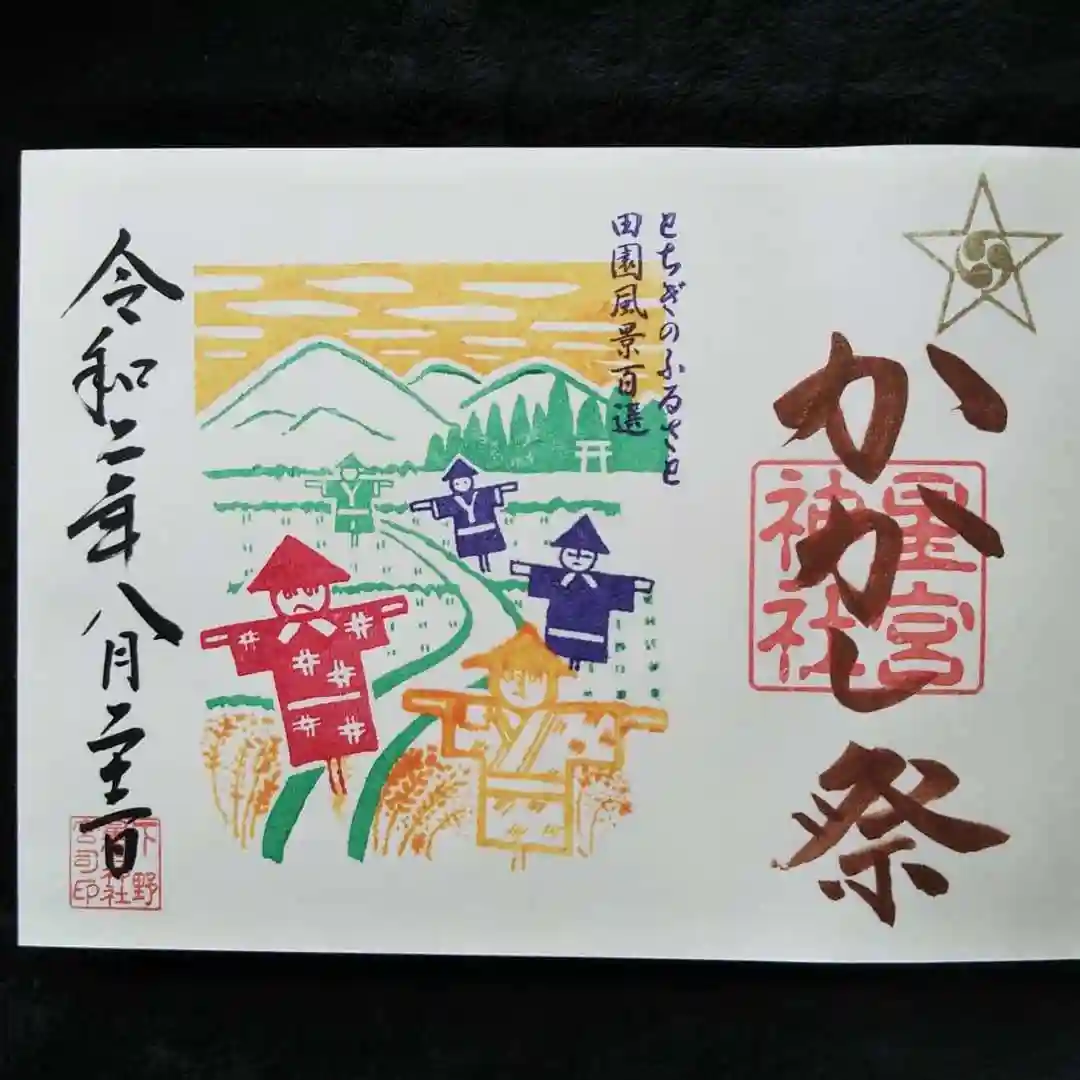 かかし祭
星宮
神社
とちぎのふるさと
田園風景百選
令和二年八月二十三日
下野
宮司印